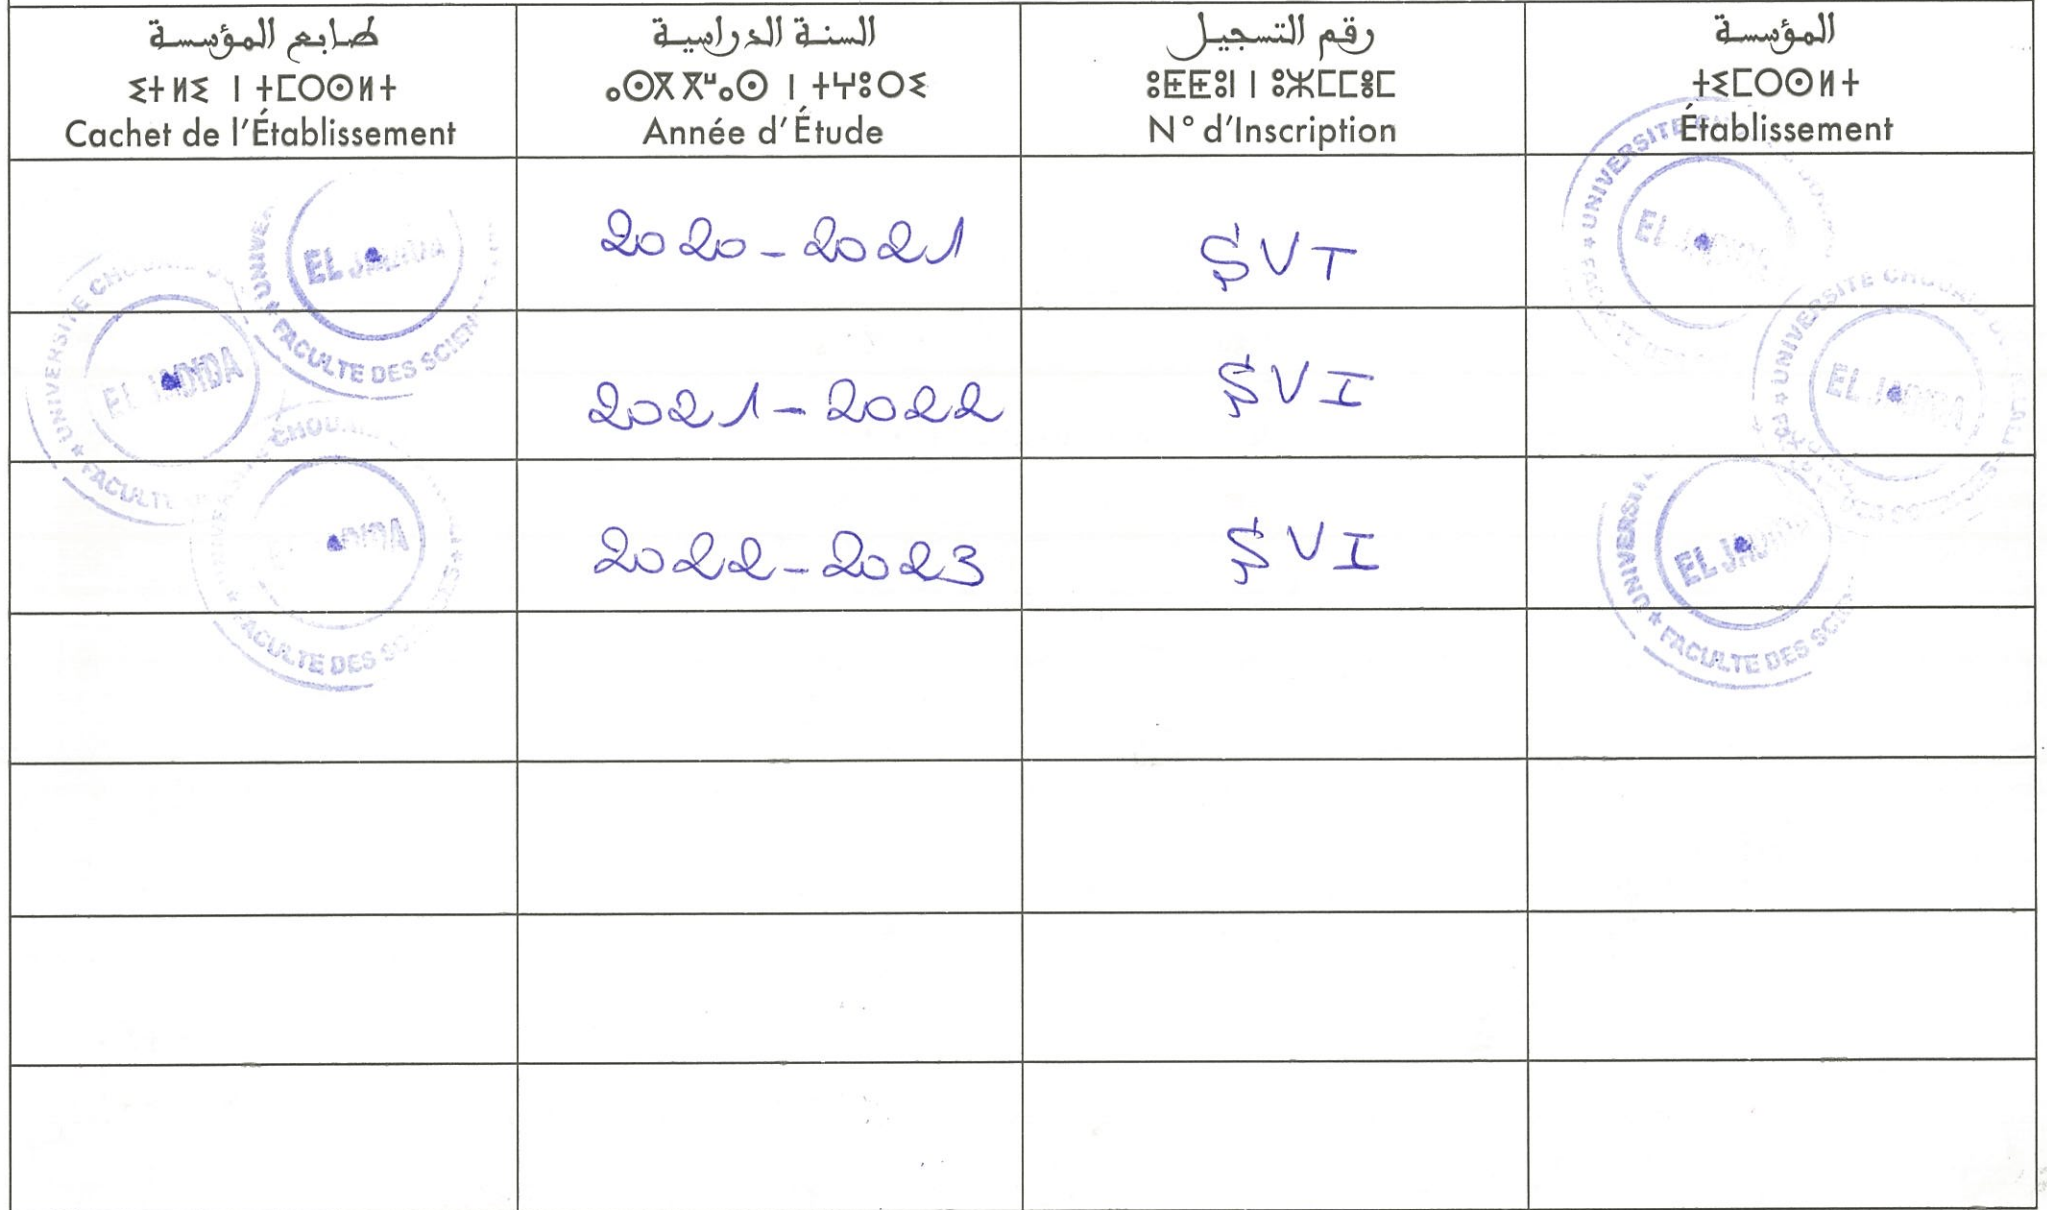 طابع المؤسسة
ⵉⵜⵍⵉ ⵏ ⵜⵎⵔⵙⵍⵜ
Cachet de l'Établissement
السنة الدراسية
ⴰⵙⴳⴳⵯⴰⵙ ⵏ ⵜⵖⵓⵔⵉ
Année d'Étude
رقم التسجيل
ⵓⵟⵟⵓⵏ ⵏ ⵓⵣⵎⵎⵓⵎ
N° d'Inscription
المؤسسة
ⵜⵉⵎⵔⵙⵍⵜ
Établissement
EL JADIDA
FACULTE DES SCIEN
2020-2021
SVT
UNIVERSITE
EL
UNIVERSITE CHOUA
EL JADIDA
FACULTE
2021-2022
SVI
UNIVERSITE CHOUA
EL JADIDA
FACULTE DES
2022-2023
SVI
UNIVERSITE
EL JADIDA
FACULTE DES SCIE